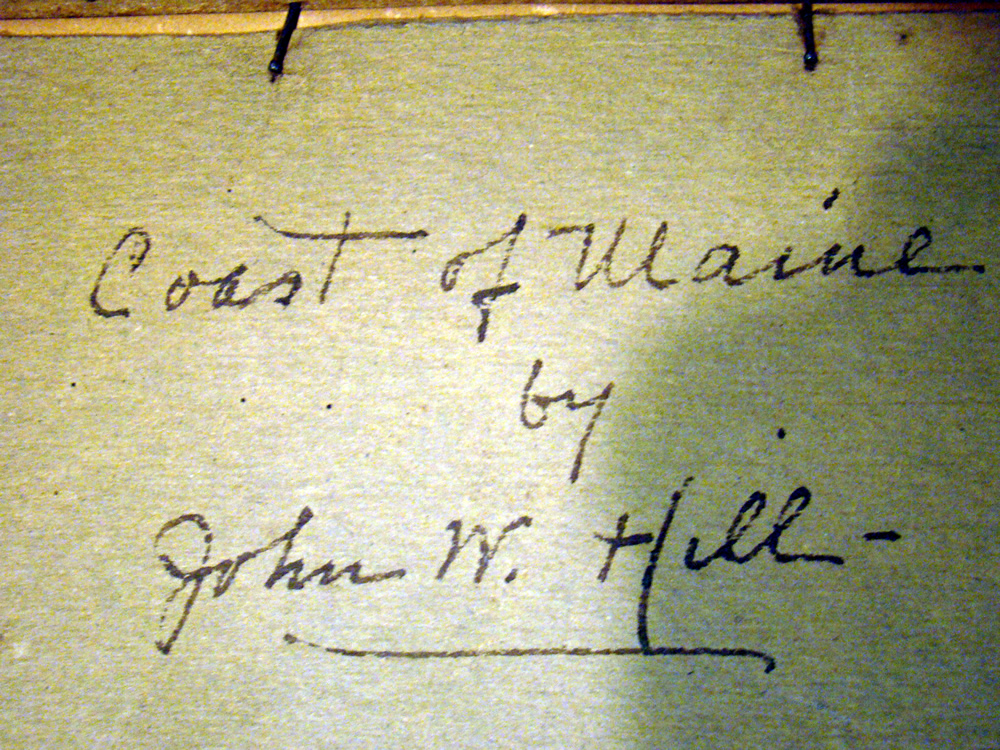 Coast of Maine
by
John W. Hill -